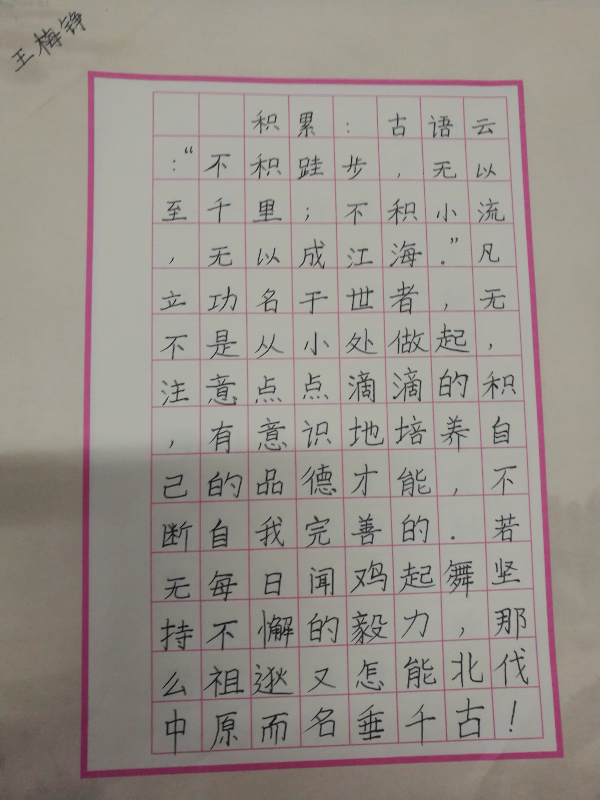 王梅铮
积累：古语云
：“不积跬步，无以
至千里；不积小流
，无以成江海.”凡
立功名于世者，无
不是从小处做起，
注意点点滴滴的积
，有意识地培养自
己的品德才能，不
断自我完善的.若
无每日闻鸡起舞坚
持不懈的毅力，那
么祖逖又怎能北伐
中原而名垂千古！